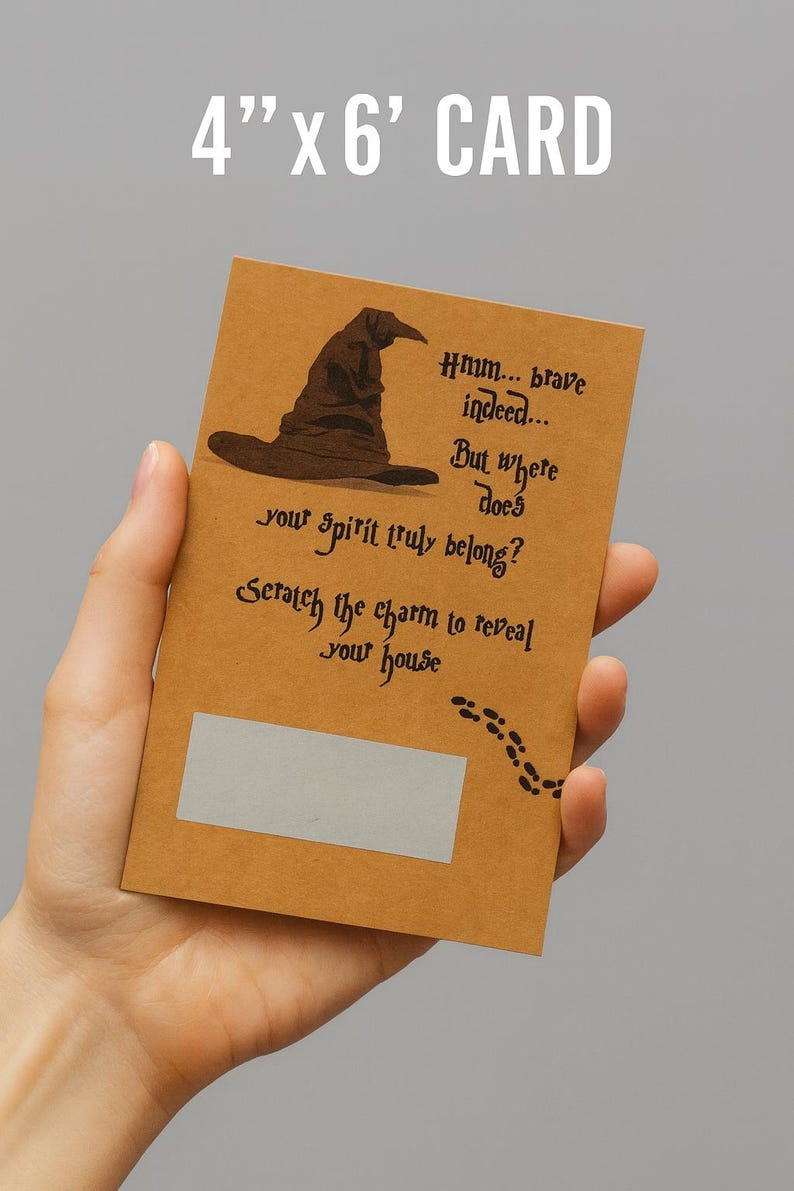 4” x 6’ CARD
Hmm... brave
indeed...
But where
does
your spirit truly belong?
Scratch the charm to reveal
your house